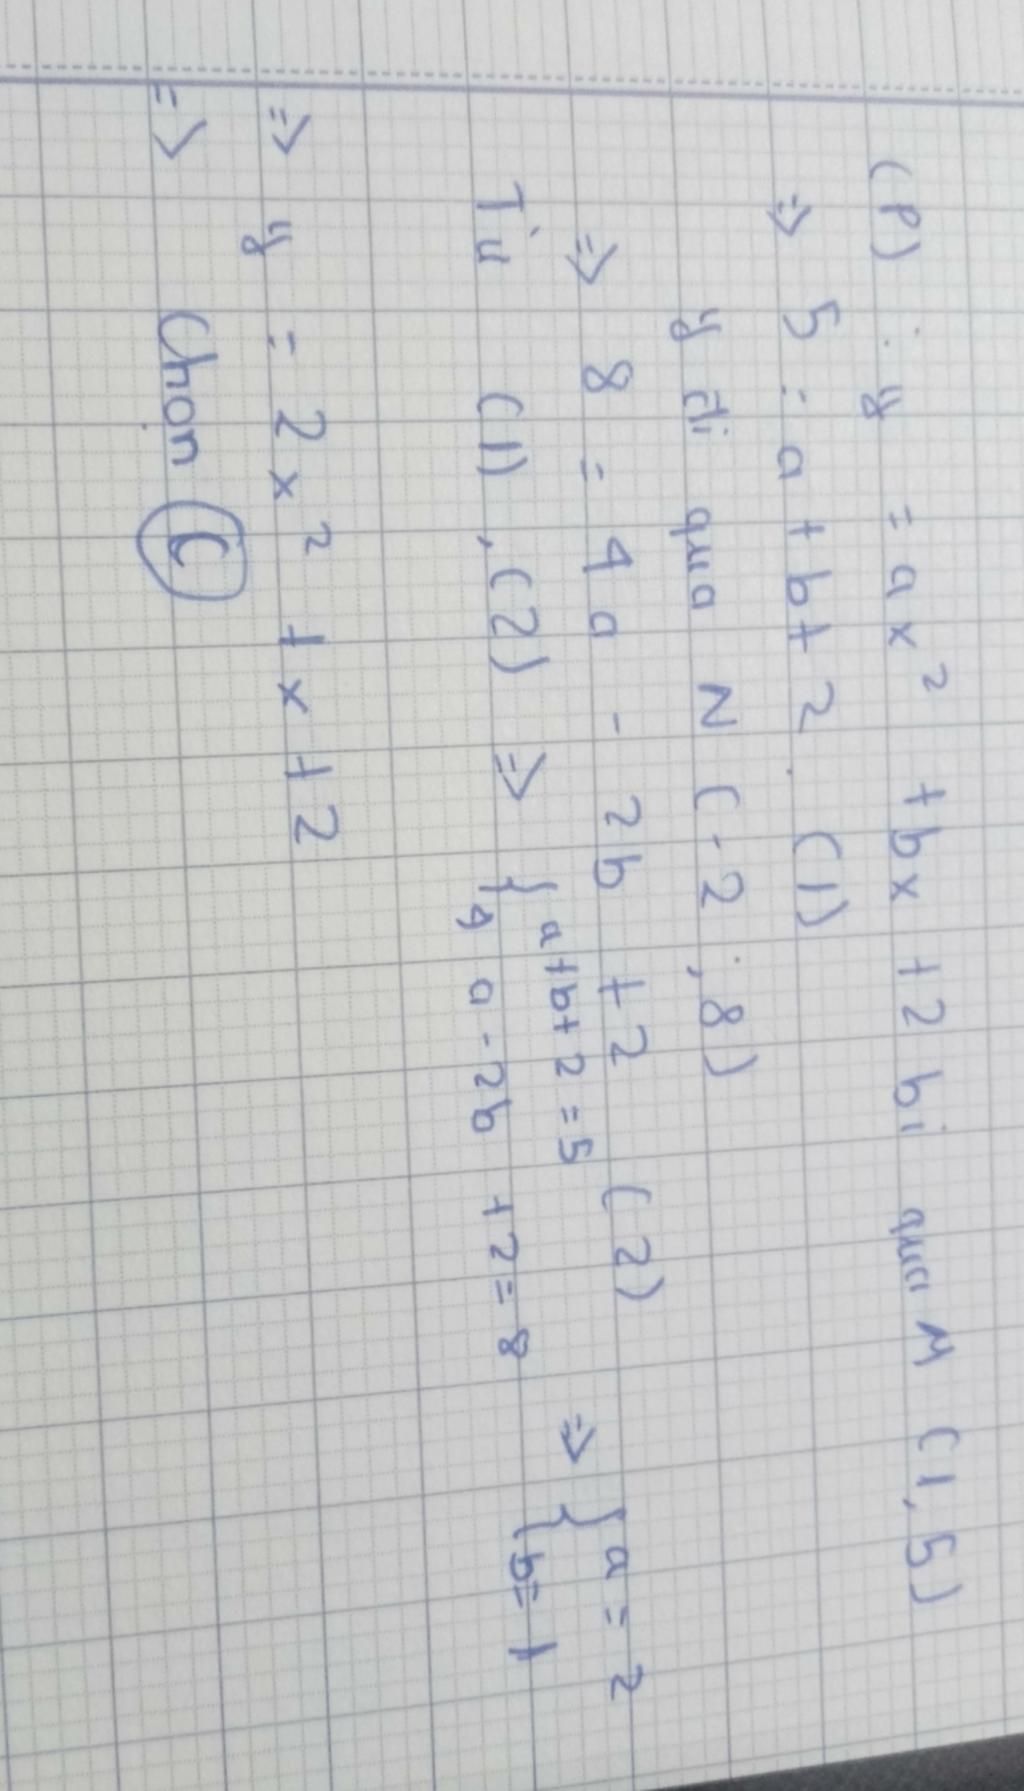 (P) : y = ax² + bx + 2 bi qua M (1, 5)
=> 5 = a + b + 2. (1)
y đi qua N (-2; 8)
=> 8 = 4a - 2b + 2 (2)
Từ (1), (2) => { a + b + 2 = 5 => { a = 2
4a - 2b + 2 = 8 b = 1
=> y = 2x² + x + 2
=> Chọn C